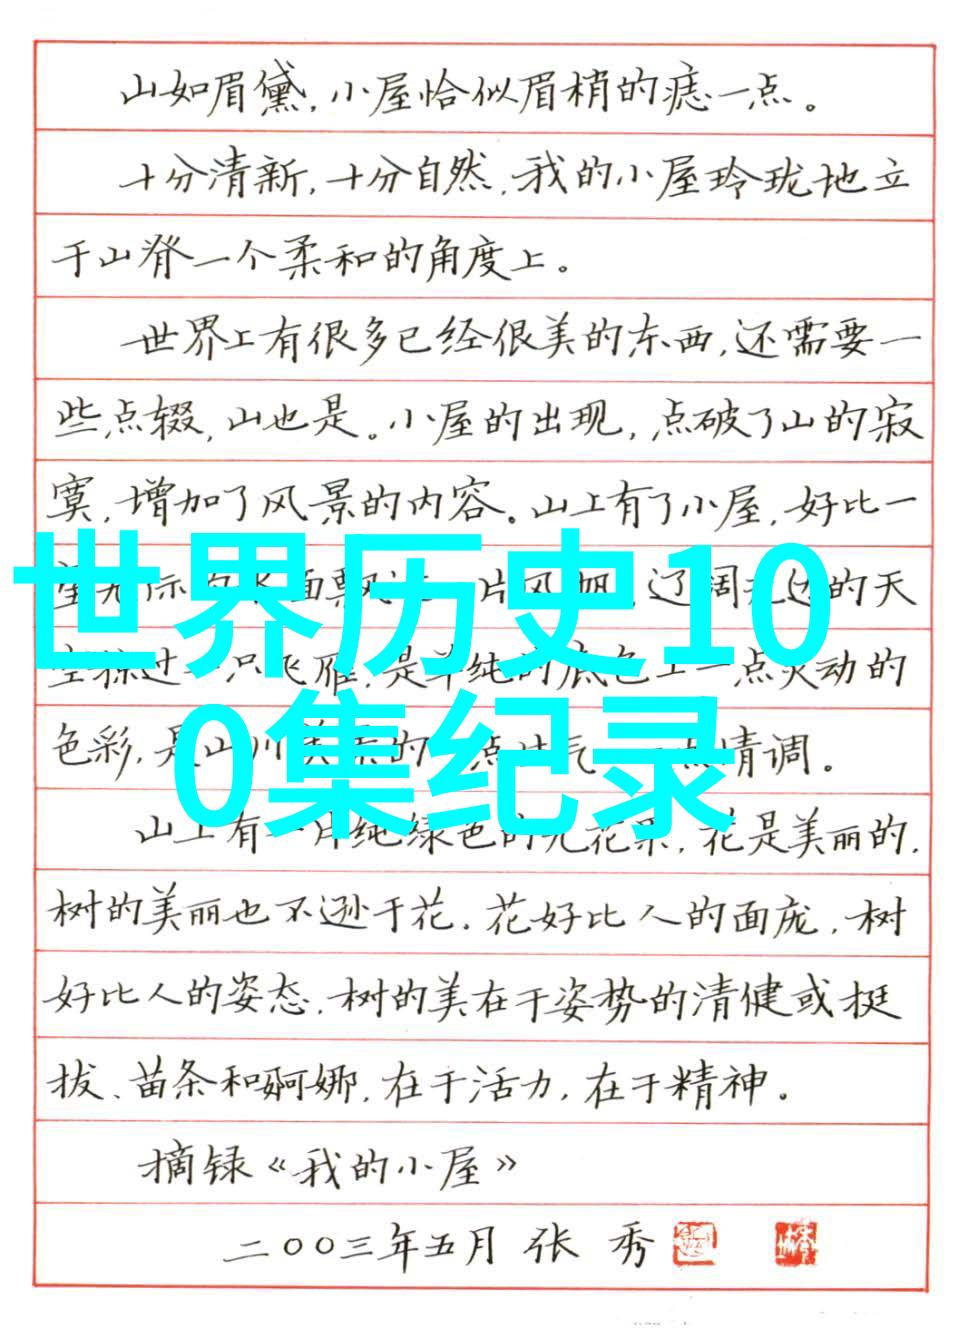 山如眉黛,小屋恰似眉梢的痣一点。
十分清新,十分自然,我的小屋玲珑地立
于山脊一个柔和的角度上。
世界上有很多已经很美的东西,还需要一
些点缀,山也是。小屋的出现,点破了山的寂
寞,增加了风景的内容。山上有了小屋,好比一
世界历史10
片风帆,辽阔无边的天
只飞雁,是单纯的底色上一点灵动的
0集纪录
色彩,是山川
情调。
山上有一片纯绿色的无花果,花是美丽的,
树的美丽也不逊于花。花好比人的面庞,树
好比人的姿态。树的美在于姿势的清健或挺
拔、苗条和婀娜,在于活力,在于精神。
摘录《我的小屋》
二〇〇三年五月 张 秀